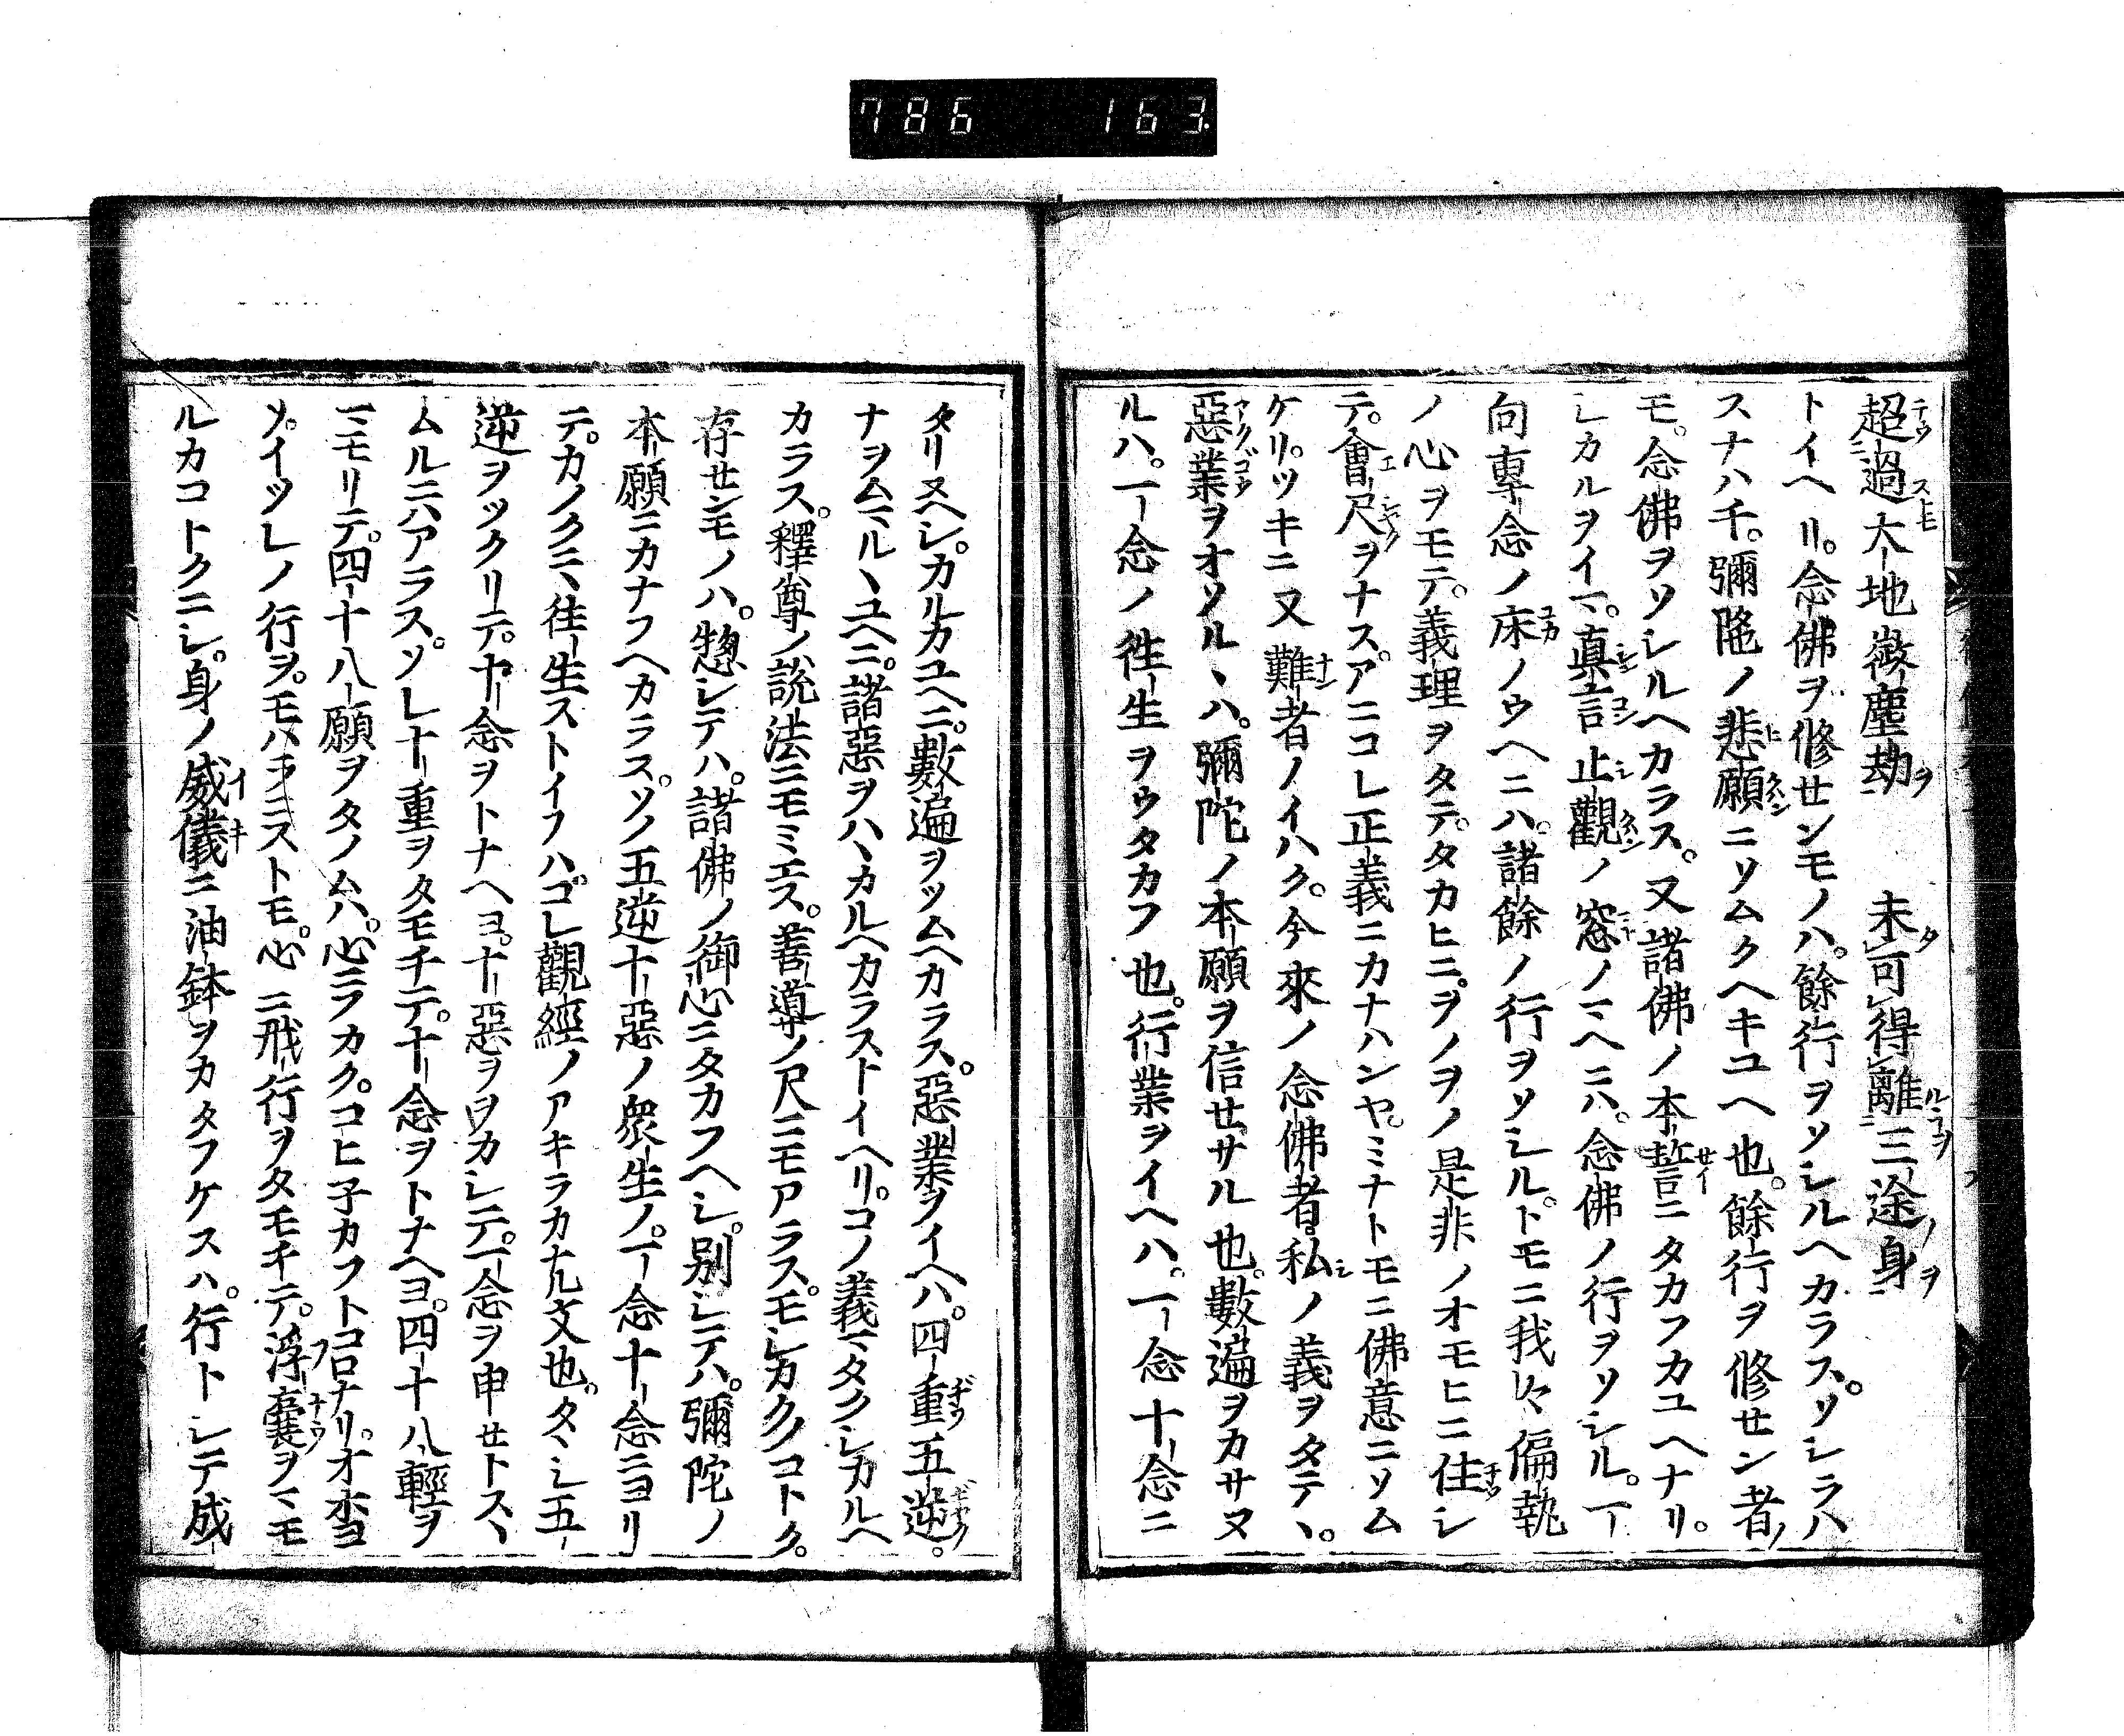 786 163.
超過大地微塵劫 未可得離三途身
トイヘリ。念佛ヲ修センモノハ。餘行ヲソシルヘカラス。ソシラハ
スナハチ。彌陀ノ悲願ニソムクヘキユヘ也。餘行ヲ修セン者ノ
モ。念佛ヲソシルヘカラス。又諸佛ノ本誓ニタカフカユヘナリ。
シカルヲイマ。眞言止觀ノ窓ノマヘニハ。念佛ノ行ヲソシル。一
向專念ノ床ノウヘニハ。諸餘ノ行ヲソシル。トモニ我々偏執
ノ心ヲモテ。義理ヲタテ。タカヒニ。ヲノヲノ是非ノオモヒニ住シ
テ。會尺ヲナス。アニコレ正義ニカナハンヤ。ミナトモニ佛意ニソム
ケリ。ツキニ又難者ノイハク。今來ノ念佛者。私ノ義ヲタテヽ。
惡業ヲオソルヽハ。彌陀ノ本願ヲ信セサル也。數遍ヲカサヌ
ルハ。一念ノ徃生ヲウタカフ也。行業ヲイヘハ。一念十念ニ
タリヌヘシ。カルカユヘニ。數遍ヲツムヘカラス。惡業ヲイヘハ。四重五逆。
ナヲムマルヽユヘニ。諸惡ヲハヽカルヘカラストイヘリ。コノ義マタクシカルヘ
カラス。釋尊ノ説法ニモミエス。善導ノ尺ニモアラス。モシカクノコトク。
存センモノハ。惣シテハ。諸佛ノ御心ニタカフヘシ。別シテハ。彌陀ノ
本願ニカナフヘカラス。ソノ五逆十惡ノ衆生ノ。一念十念ニヨリ
テ。カノクニヽ徃生ストイフハ。コレ觀經ノアキラカナル文也。タヽシ五
逆ヲツクリテ。十念ヲトナヘヨ。十惡ヲヲカシテ。一念ヲ申セトスヽ
ムルニハアラス。ソレ十重ヲタモチテ。十念ヲトナヘヨ。四十八輕ヲ
マモリテ。四十八願ヲタノムハ。心ニフカクコヒ子カフトコロナリ。オホヨ
ソ。イツレノ行ヲ。モハラニストモ。心ニ戒行ヲタモチテ。浮囊ヲマモ
ルカコトクニシ。身ノ威儀ニ油鉢ヲカタフケスハ。行トシテ成